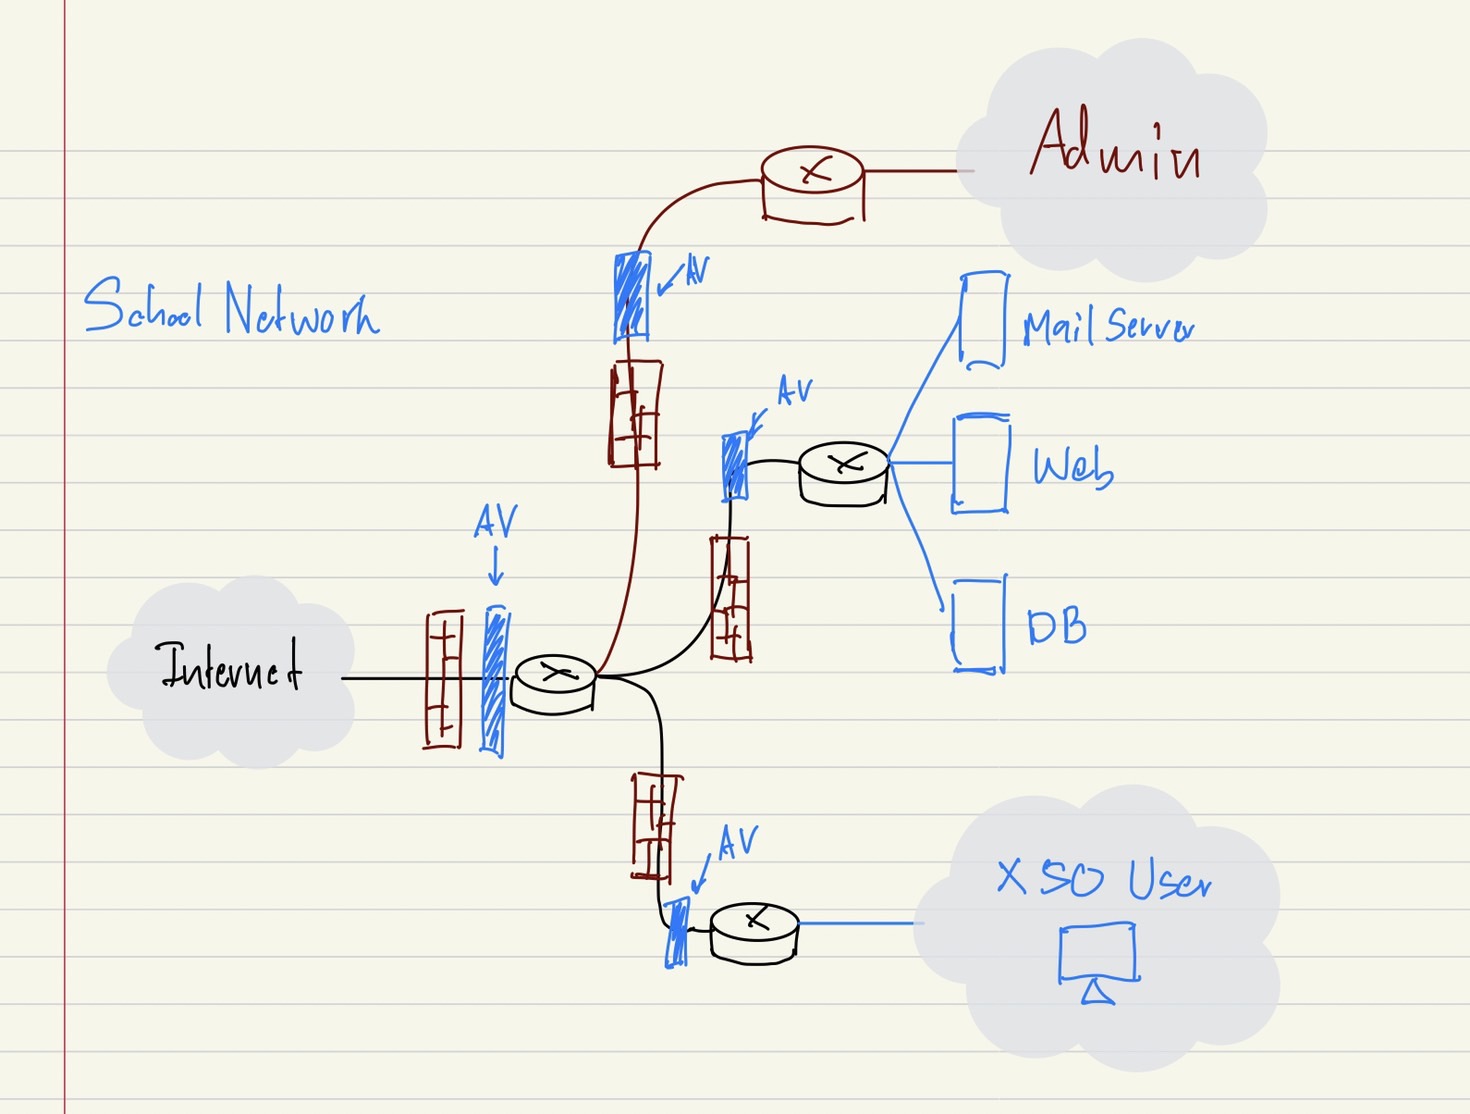 Admin
AV
School Network
Mail Server
AV
Web
AV
DB
Internet
AV
X 50 User